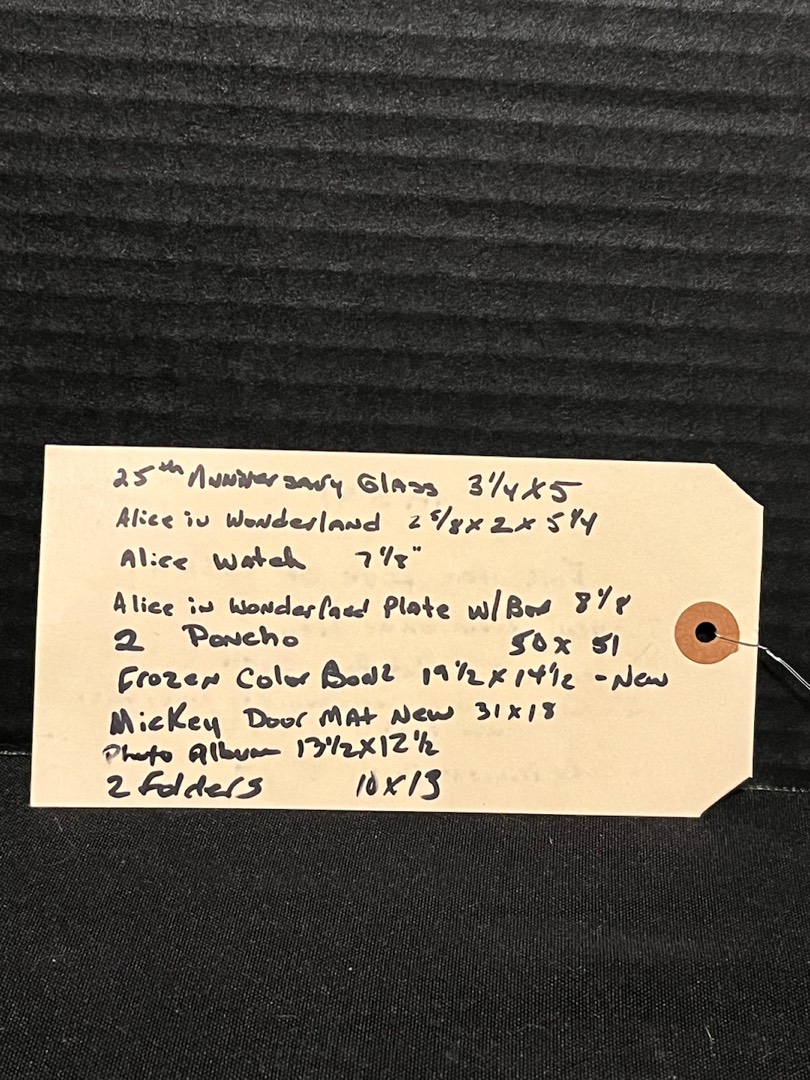 25th Anniversary Glass 3 1/4 X 5
Alice in Wonderland 2 5/8 x 2 x 5 1/4
Alice watch 7 1/8"
Alice in Wonderland Plate w/Box 8 1/8
2 Poncho 50 x 51
Frozen Color Book 19 1/2 x 14 1/2 - New
Mickey Door MAt New 31 x 18
Photo Album 13 1/2 X 12 1/2
2 Folders 10 x 13